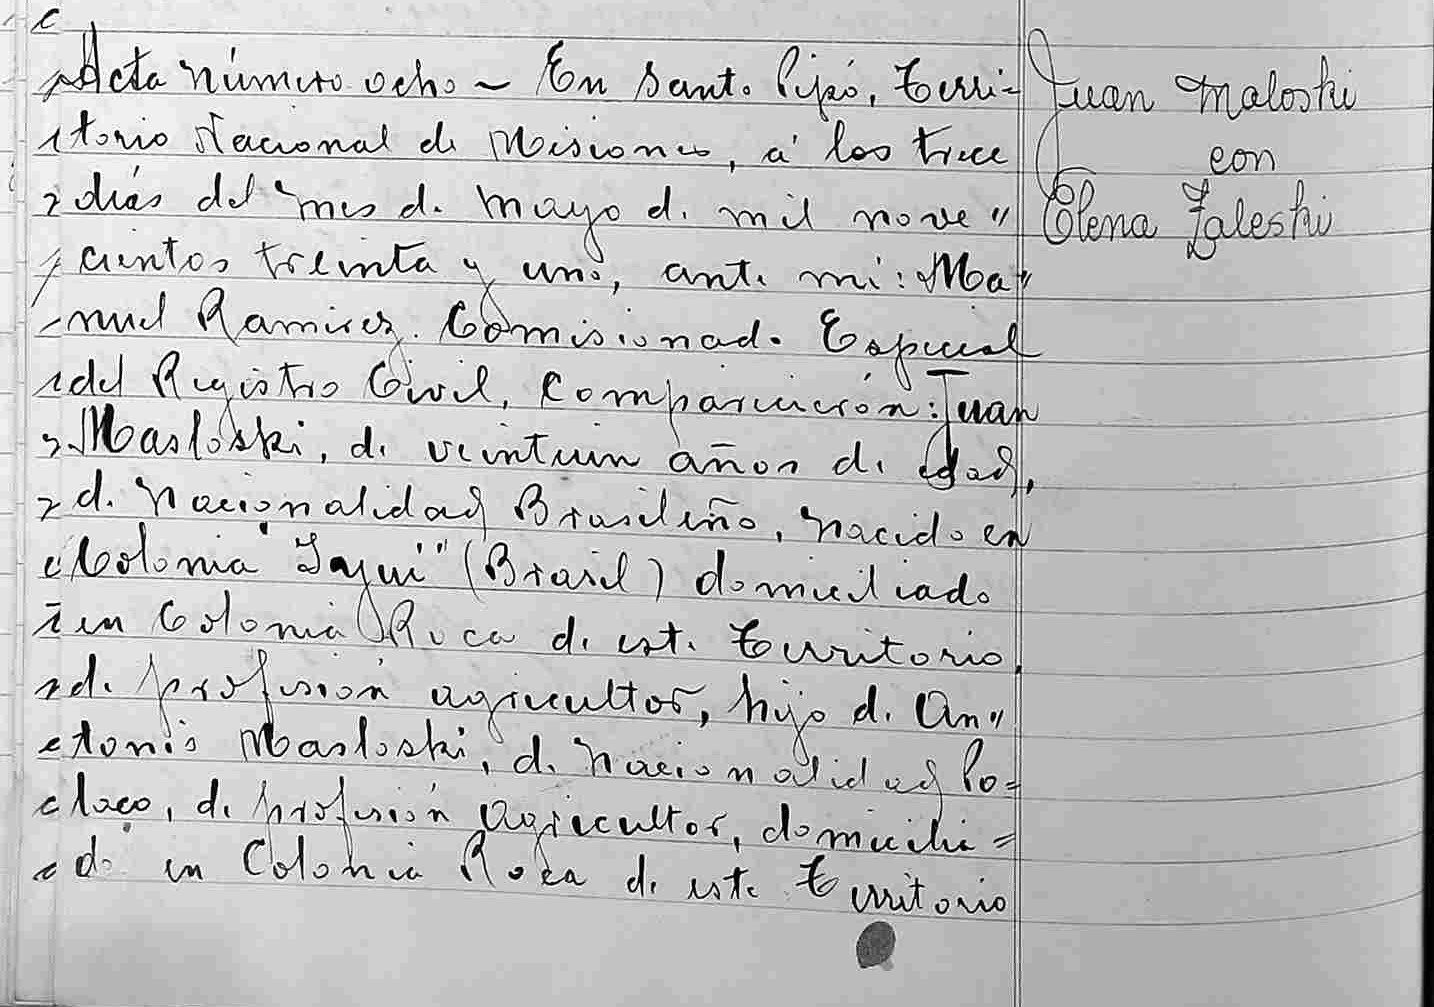 Acta número ocho ~ En Santo Pipó, Terri-
torio Nacional de Misiones, á los trece
días del mes de Mayo de mil nove"
cientos treinta y uno, ante mi: Ma"
nuel Ramirez. Comisionado Especial
del Registro Civil, Comparicición: Juan
Masloski, de veintiun años de edad,
de nacionalidad Brasileño, nacido en
Colonia "Iguí" (Brasil) domiciliado
en Colonia Roca de este Territorio,
de profesión agricultor, hijo de An"
tonio Masloski, de nacionalidad Po=
laco, de profesión agricultor, domicilia=
do en Colonia Roca de este Territorio
Juan Maloski
con
Elena Zaleski